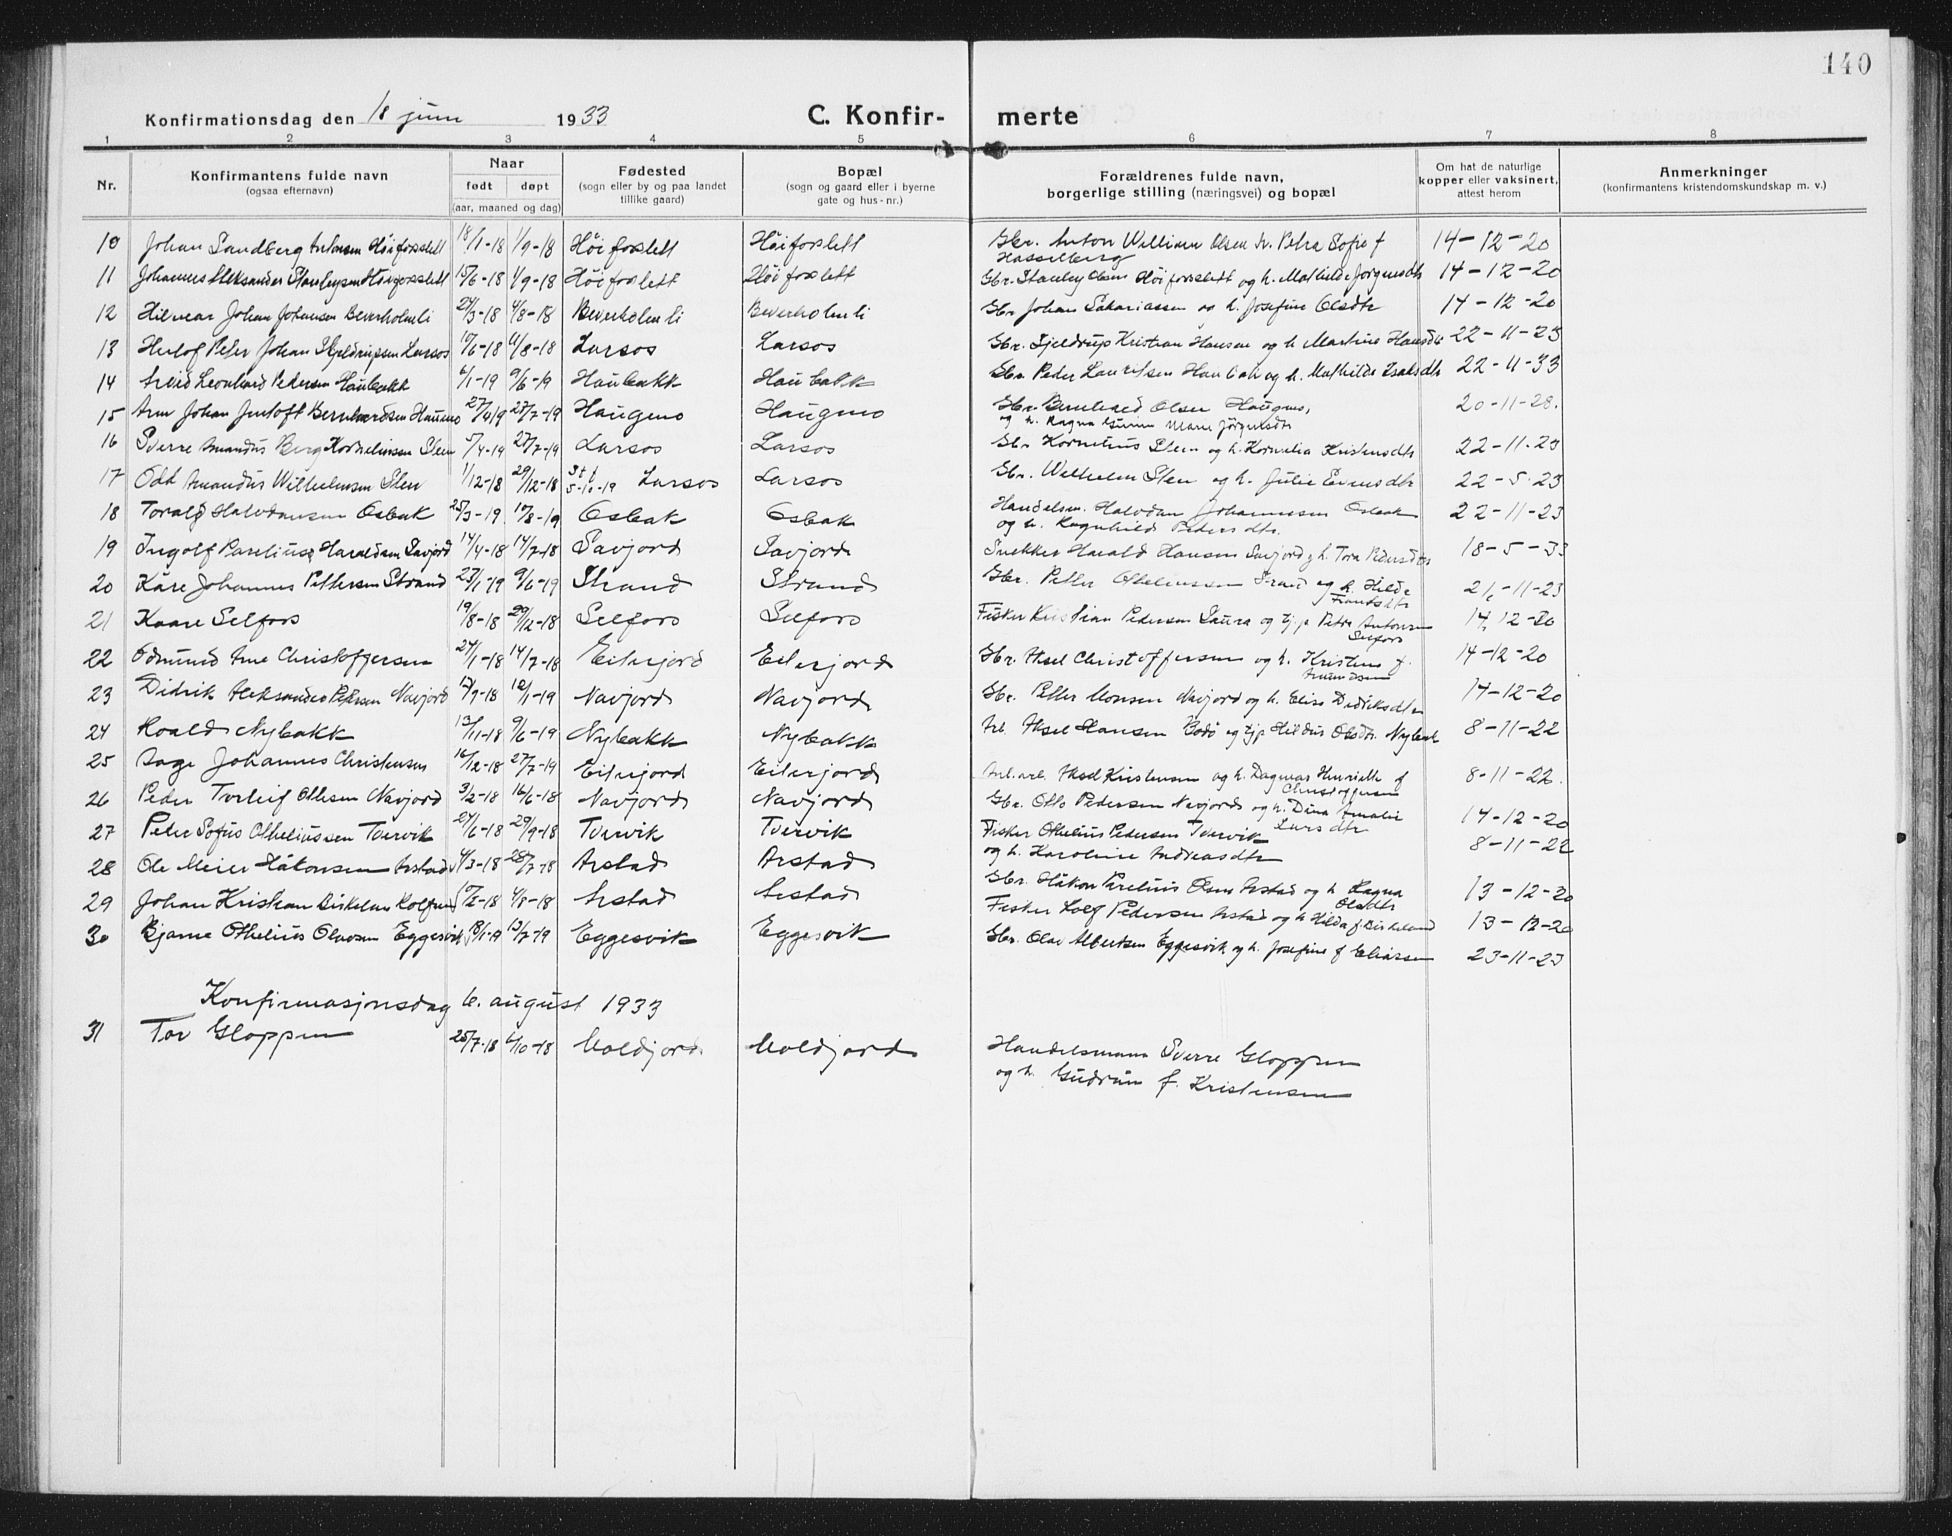 140
Konfirmationsdag den 18 juni 1933 C. Konfir- merte
1 2 3 4 5 6 7 8
Nr. Konfirmantens fulde navn (ogsaa efternavn) Naar født døpt (aar, maaned og dag) Fødested (sogn eller by og paa landet tillike gaard) Bopæl (sogn og gaard eller i byerne gate og hus-nr.) Forældrenes fulde navn, borgerlige stilling (næringsvei) og bopæl Om hat de naturlige kopper eller vaksinert, attest herom Anmerkninger (konfirmantens kristendomskundskap m. v.)
10 Johan Sandberg Antonsen Höiforslett 18/1-18 1/9-18 Höiforslett Höiforslett Gbr. Anton William Olsen h. Petra Sofie f Hasselberg 14-12-20
11 Johannes Aleksander Stanleysen Höiforslett 15/6-18 1/9-18 Höiforslett Höiforslett Gbr. Stanley Olsen Höiforslett og h. Mathilde Jörgensdtr 14-12-20
12 Hilmar Johan Johansen Beverholmli 24/3-18 4/8-18 Beverholmli Beverholmli Gbr Johan Sakariassen og h. Josefine Olsdtr 14-12-20
13 Herlof Peter Johan Skjeldrupsen Larsos 10/6-18 11/8-18 Larsos Larsos Gbr. Kristian Hansen og h Martine Hansdtr 22-11-23
14 Arvid Leonhard Pedersen Haubakk 6/1-19 9/6-19 Haubakk Haubakk Gbr. Peder Lauritsen Haubak og h. Mathilde Isaksdtr 22-11-33
15 Arne Johan Jentoft Bernhardsen Haugmo 27/4 19 27/7-19 Haugmo Haugmo Gbr. Bernhard Olsen Haugmo, og h. Ragna Marie Jörgensdtr 20-11-28.
16 Sverre Amandus Berg Korneliussen Steen 5/4-19 27/7-19 Larsos Larsos Gbr Kornelius Steen og h. Kornelia Kristensdtr 22-11-23
17 Odd Amandus Wilhelmsen Sten 1/12-18 29/12-18 5-10-19 Larsos Larsos Gbr. Wilhelm Sten og h. Julie Edvinsdtr 22-5-23
18 Toralf Halvdansen Osbak 25/3-19. 10/8-19 Osbak Osbak Handelsm. Halvdan Johannessen Osbak og h. Ragnhild Pedersdtr. 22-11-23
19 Ingolf Pareliuss Haraldsen Savjord 14/4-18 14/7-18 Savjord Savjord Snekker Harald Hansen Savjord og h. Tora Pedersdtr 18-5-33
20 Kåre Johannes Pettersen Strand 23/1-19 9/6-19 Strand Strand Gbr. Petter Otheliussen Strand og h. Hilda Frantsdtr 21-11-23
21 Kaare Selfors 19/8-18 29/12-18 Selfors Selfors Fisker Kristian Pedersen Saura og tjp Petra Antonsen Selfors 14-12-20
22 Odmund Arne Christoffersen 27/1-18 14/7-18 Eiterjord Eiterjord Gbr. Aksel Christoffersen og h. Kristine f. Amundsen 14-12-20
23 Didrik Aleksander Petersen Navjord 17/9-18 12/1-19 Navjord Navjord Gbr. Petter Monsen Navjord og h. Elise Didriksdtr 14-12-20
24 Roald Nybakk 13/11-18 9/6-19 Nybakk Nybakk Arb. Aksel Hansen Bodö og tjp Hildur Olsdtr. Nybak 8-11-22
25 Aage Johannes Christensen 16/12-18 27/7-19 Eiterjord Eiterjord Anl.arb. Aksel Kristensen og h. Dagmar Henriette f Christoffersen 8-11-22.
26 Peder Torleif Ottesen Navjord 3/2-18 16/6-18 Navjord Navjord Gbr. Otto Pedersen Navjord og h. Dina Amalie Larsdtr 14-12-20
27 Peter Sofus Otheliussen Tvervik 24/6-18 29/9-18 Tvervik Tvervik Fisker Othelius Pedersen Tvervik og h. Karoline Andreasdtr 8-11-22
28 Ole Meier Håkonsen Arstad 4/3-18 28/7-18 Arstad Arstad Gbr. Håkon Parelius Olsen Arstad og h Ragna Olsdtr 13-12-20
29 Johan Kristian Birkelan Rolfsen 17/2-18 4/8-18 Arstad Arstad Fisker Pedersen Arstad og h Hilda f. Birkeland 13-12-20
30 Bjarne Othelius Olavsen Eggesvik 18/1-19 13/7-19 Eggesvik Eggesvik Gbr. Olav Albertsen Eggesvik og h. Josefine f Eliassen 23-11-23
Konfirmasjonsdag 6. august 1933
31 Tor Gloppen 25/7-18 6/10-18 Moldjord Moldjord Handelsmann Sverre Gloppen
og h. Gudrun f. Kristensen